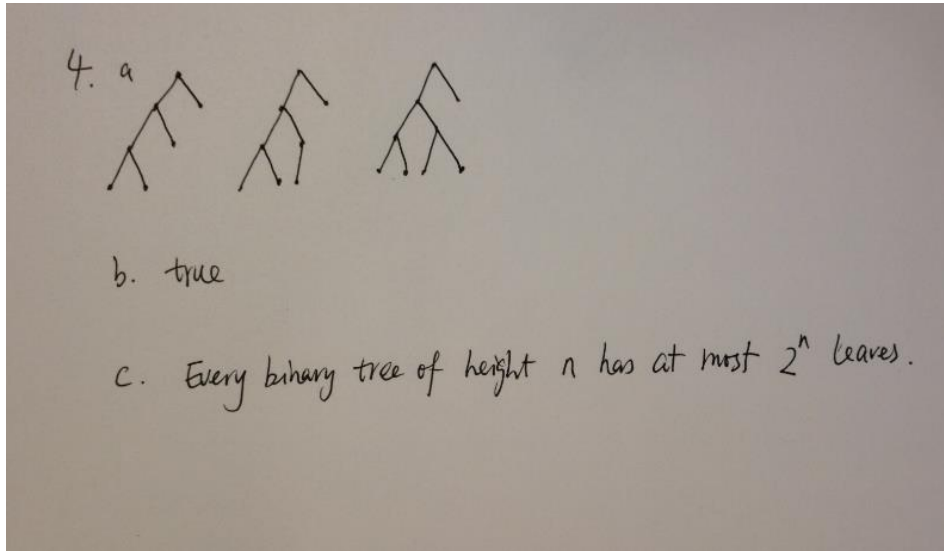 4. a
b. true
c. Every binary tree of height n has at most 2ⁿ leaves.